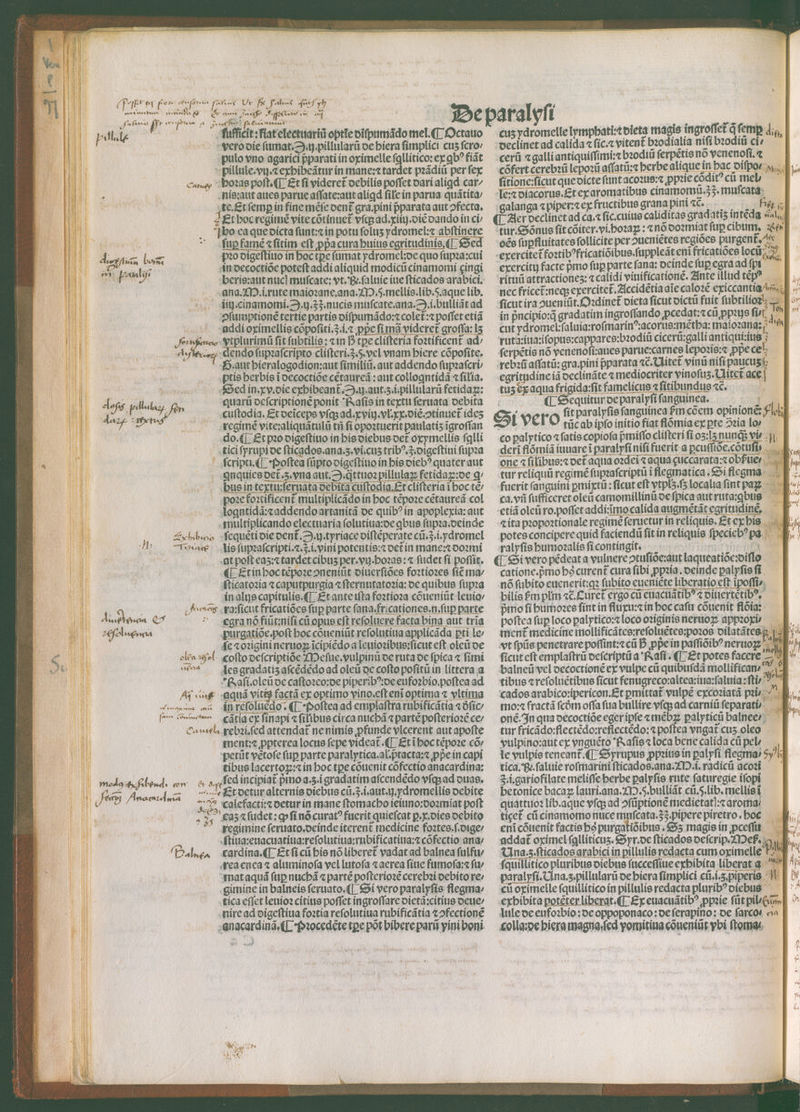 De paralysi
pillule
Cautela
digestivum
Balnea
Cautela
sufficit: fiat electuariũ opt̃e dispumãdo mel. ¶ Octauo
vero die sumat. Ʒ.ij. pillularũ de hiera simplici cuʒ scro-
pulo vno agarici p̃parati in oximelle sq̃llitico: ex qb⁹ fiãt
pillule. vij. ⁊ exhibeãtur in mane: ⁊ tardet prãdiũ per sex
horas post. ¶ Et si videret̃ debilis posset dari aliqd̃ car-
nis: aut aues parue assate: aut aliqd̃ sil̃e in parua quãtita-
te. Et semp in fine mẽse dent̃ gra. pini p̃parata aut ɔfecta.
Et hoc regimẽ vite cõtinuet̃ vsq ad. xiiij. diẽ dando in ci-
bo ea que dicta sunt: ⁊ in potu solus ydromel: ⁊ abstinere
sup famẽ ⁊ sitim est p̃pa cura huius egritudinis. ¶ Sed
pro digestiuo in hoc tp̃e sumat ydromel: de quo supra: cui
in decoctiõe potest addi aliquid modicũ cinamomi çingi
beris: aut nuc̃ muscate: vt. ℞. saluie iue sticados arabici.
ana. M.i. rute maiorane. ana. M.ʃ. mellis. lib.ʃ. aque lib.
iiij. cinamomi. Ʒ.ij. ʒʒ. nucis muscate. ana. Ʒ.i. bulliãt ad
ɔsumptionẽ tertie partis dispumãdo: ⁊ colet̃: ⁊ posset etiã
addi oximellis cõpositi. ʒ.i. ⁊ p̃pe si mã videret̃ grossa: lʒ
viplurimũ sit subtilis: ⁊ in ħ tp̃e clisteria fortificent̃ ad-
dendo suprascripto clisteri. ʒ.ʃ. vel vnam hiere cõposite.
S. aut hieralogodion: aut similiũ. aut addendo suprascri-
ptis herbis ĩ decoctiõe cẽtaureã: aut colloqntidã ⁊ silia.
Sed in. xv. die exhibeant̃. Ʒ.ij. aut. ʒ.i. pillularũ fetidaʒ:
quarũ descriptionẽ ponit Rasis in textu seruata debita
custodia. Et deiceps vsq ad. xvij. vl̃. xx. diẽ. ɔtinuet̃ idẽʒ
regimẽ vite: aliquãtulũ tñ si oportuerit paulatiʒ ĩgrossan
do. ¶ Et pro digestiuo in his diebus det̃ oxymellis sq̃lli
tici syrupi de sticados. ana. ʒ.vi. cuʒ trib⁹. ʒ. digestiui supra
scripti. ¶ Postea supto digestiuo in his dieb⁹ quater aut
quinquies det̃. ʒ. vna aut. Ʒ. q̃ttuor pillulaʒ fetidaʒ: de q-
bus in textu: seruata debita custodia. Et clisteria ĩ hoc tẽ-
pore fortificent̃ multiplicãdo in hoc tẽpore cẽtaureã col
loqntidã: ⁊ addendo artanitã de quib⁹ in apoplexia: aut
multiplicando electuaria solutiua: de qbus supra. deinde
sequẽti die dent̃. Ʒ.ij. tyriace distẽperate cũ. ʒ.i. ydromel
lis suprascripti. ⁊. ʒ.i. vini potentis: ⁊ det̃ in mane: ⁊ dormi
at post eaʒ: ⁊ tardet cibuʒ per. vij. horas: ⁊ sudet si possit.
¶ Et in hoc tẽpore ɔneniũt diuersiões fortiores sic̃ ma-
sticatoria ⁊ caputpurgia ⁊ sternutatoria: de quibus supra
in alijs capitulis. ¶ Et ante ista fortiora cõueniũt leuio-
ra: sicut fricatiões sup parte sana. fricationes. n. sup parte
egra nõ fiũt: nisi cũ opus est resoluere facta bina aut trĩa
purgatiõe. post hoc cõueniũt resolutiua applicãda p̃ti le-
se ⁊ origini neruoʒ ĩcipiẽdo a leuioribus: sicut est oleũ de
costo descriptiõe Mesue. vulpinũ de ruta de spica ⁊ simi
les gradatiʒ ascẽdẽdo ad oleũ de costo positũ in littera a
Rasi. oleũ de castoreo: de piperib⁹: de euforbio. postea ad
aquã vitẽ factã ex optimo vino. est eni optima ⁊ vltima
in resoluẽdo. ¶ Postea ad emplastra rubificãtia ⁊ õsic-
cãtia ex sinapi ⁊ silibus circa nuchã ⁊ partẽ posteriorẽ ce-
rebri. sed attendat̃ ne nimis p̃funde vlcerent̃ aut aposte
ment̃: ⁊ p̃pterea locus sepe videat̃. ¶ Et ĩ hoc tẽpore cõ-
petũt vẽtose sup parte paralytica. al̃. ptacta: ⁊ p̃pe in capi
tibus lacertoʒ: ⁊ in hoc tp̃e cõuenit cõfectio anacardina:
sed incipiat̃ p̃mo a. ʒ.i gradatim ascẽdẽdo vsq ad duas.
Et detur alternis diebus cũ. ʒ.i. aut. ij. ydromellis debite
calefacti: ⁊ detur in mane stomacho ieiuno: dormiat post
eaʒ ⁊ sudet: qꝫ si nõ curat⁹ fuerit quiescat p. x. dies debito
regimine seruato. deinde iterent̃ medicine fortes. s. dige-
stiua: euacuatiua: resolutiua: rubificatiua: ⁊ cõfectio ana-
cardina. ¶ Et si cũ his nõ liberet̃ vadat ad balnea sulfu-
rea enea ⁊ aluminosa vel lutosa ⁊ aerea siue fumosa: ⁊ su-
mat aquã sup nuchã ⁊ partẽ posteriorẽ cerebri debito re-
gimine in balneis seruato. ¶ Si vero paralysis flegma-
tica esset leuior citius posset ingrossare dietã: citius deue-
nire ad digestiua fortia resolutiua rubificãtia ⁊ ɔfectionẽ
anacardinã. ¶ Procedẽte tp̃e põt bibere parũ vini boni
cuʒ ydromelle lymphati: ⁊ dieta magis ingrosset̃ q̃ semp
declinet ad calida ⁊ sic. ⁊ vitent̃ brodialia nisi brodiũ ci-
cerũ ⁊ galli antiquissimi: ⁊ brodiũ serpẽtis nõ venenosi. ⁊
cõfert cerebrũ leporũ assatũ: ⁊ herbe alique in hac dispo-
sitione: sicut que dicte sunt acorus: ⁊ p̃prie cõdit⁹ cũ mel-
le: ⁊ diacorus. Et ex aromatibus cinamomũ. ʒʒ. muscata
galanga ⁊ piper: ⁊ ex fructibus grana pini ⁊c̃.
¶ Aer declinet ad ca. ⁊ sic. cuius caliditas gradatiʒ intẽda
tur. Sõnus sit cõiter. vi. horaʒ: ⁊ nõ dormiat sup cibum.
oẽs supfluitates sollicite per ɔueniẽtes regiões purgent̃.
exercitet̃ fortib⁹ fricatiõibus. suppleãt eni fricatiões locũ
exercitij facte p̃mo sup parte sana: deinde sup egrã ad spi
rituũ attractioneʒ: ⁊ calidi viuificationẽ. Ante illud tẽp⁹
nec fricet̃: neqʒ exercitet̃. Accidẽtia aĩe calorẽ exiccantia
sicut ira ɔueniũt. Ordinet̃ dieta sicut dictũ fuit subtilior
in p̃ncipio: q̃ gradatim ingrossando p̃cedat: ⁊ cũ p̃prijs si-
cut ydromel: saluia: rosmarin⁹: acorus: mẽtha: maiorana:
ruta: iua: isopus: cappares: brodiũ cicerũ: galli antiqui: ius
serpẽtis nõ venenosi: aues parue: carnes leporis: ⁊ p̃pe ce-
rebrũ assatũ: gra. pini p̃parata ⁊c̃. Uitet̃ vinũ nisi paucuʒ
egritudine iã declinãte ⁊ mediocriter vinosuʒ. Uitet̃ ace
tuʒ ⁊ ex aqua frigida: sit famelicus ⁊ sitibundus ⁊c̃.
¶ Sequitur de paralysi sanguinea.
Si vero sit paralysis sanguinea fm cõem opinionẽ
tũc ab ipso initio fiat flõmia ex p̃te ɔ̃ria lo-
co palytico ⁊ satis copiosa p̃misso clisteri si oʒ: lʒ nunqʒ vi-
derĩ flõmiã iuuare ĩ paralysi nisi fuerit a pcussiõe. cõtusi-
one ⁊ silibus: ⁊ det̃ aqua ordei ⁊ aqua çuccarata: ⁊ obserue-
tur reliquũ regimẽ suprascriptũ ĩ flegmatica. Si flegma
fuerit sanguini pmixtũ: sicut est vtplʒ. lʒ localia sint paʒ
ca. vñ sufficeret oleũ camomillinũ de spica aut ruta: qbus
etiã oleũ ro. posset addi: ĩmo calida augmẽtãt egritudinẽ.
⁊ ita proportionale regimẽ seruetur in reliquis. Et ex his
potes concipere quid faciendũ sit in reliquis specieb⁹ pa
ralysis humoralis si contingit.
¶ Si vero pẽdeat a vulnere ɔtusiõe: aut laqueatiõe: dislo
catione. p̃mo hõ current̃ cura sibi p̃pria. deinde palysis si
nõ subito euenerit: qʒ subito eueniẽte liberatio est ĩpossi-
bilis fm plm ⁊c̃. Curet̃ ergo cũ euacuãtib⁹ ⁊ diuertẽtib⁹.
p̃mo si humores sint in fluxu: ⁊ in hoc casu cõuenit flõia:
postea sup loco palytico: ⁊ loco originis neruoʒ approxi-
ment̃ medicine mollificãtes: resoluẽtes: poros dilatãtes
vt sp̃us penetrare possint: ⁊ cũ ħ p̃pe in passiõib⁹ neruoʒ
sicut est emplastrũ descriptũ a Rasi. ¶ Et potes facere
balneũ vel decoctionẽ ex vulpe cũ quibusdã mollifican-
tibus ⁊ resoluẽtibus sicut fenugreco: altea: iua: saluia: sti-
cados arabico: ipericon. Et p̃mittat̃ vulpẽ excoriatã pri-
mo: ⁊ fractã scõm ossa sua bullire vsqʒ ad carniũ separati-
onẽ. In qua decoctiõe eger ipse ⁊ mẽbʒ palyticũ balnee-
tur fricãdo: flectẽdo: reflectẽdo: ⁊ postea vngat̃ cuʒ oleo
vulpino: aut ex vnguẽto Rasis ⁊ loca bene calida cũ pel-
le vulpis teneant̃. ¶ Syrupus p̃prius in palysi flegma-
tica. ℞. saluie rosmarini sticados. ana. M.i. radicũ acori
ʒ.i. gariofilate melisse herbe palysis rute saturegie isopi
betonice baccaʒ lauri. ana. M.ʃ. bulliãt cũ. ʃ. lib. mellis ĩ
quattuor lib. aque vsqʒ ad ɔsuptionẽ medietat̃: ⁊ aroma-
tiçet̃ cũ cinamomo nuce muscata. ʒʒ. pipere piretro. hoc
eni cõuenit factis his purgatiõibus. Sʒ magis in p̃cessu
addat̃ oximel sq̃lliticuʒ. Syr. de sticados descrip. Mes.
Una. ʒ. sticados arabici in pillulis redacta cum oximelle
squillitico pluribus diebus successiue exhibita liberat a
paralysi. Una. ʒ. pillularũ de hiera simplici cũ. i. ʒ. piperis
cũ oximelle sq̃llitico in pillulis redacta plurib⁹ diebus
exhibita potẽter liberat. ¶ Ex euacuãtib⁹ p̃prie sũt pil-
lule de euforbio: de oppoponaco: de serapino: de sarco-
colla: de hiera magna. sed vomitiua cõueniũt vbi stoma-